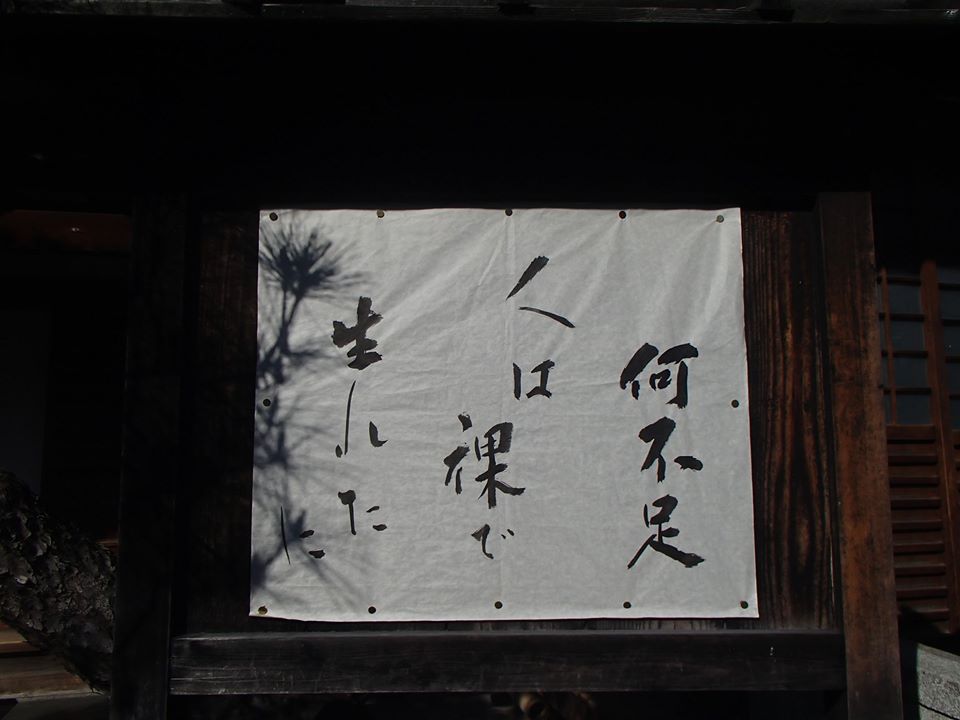 何不足
人は裸で
生れたに